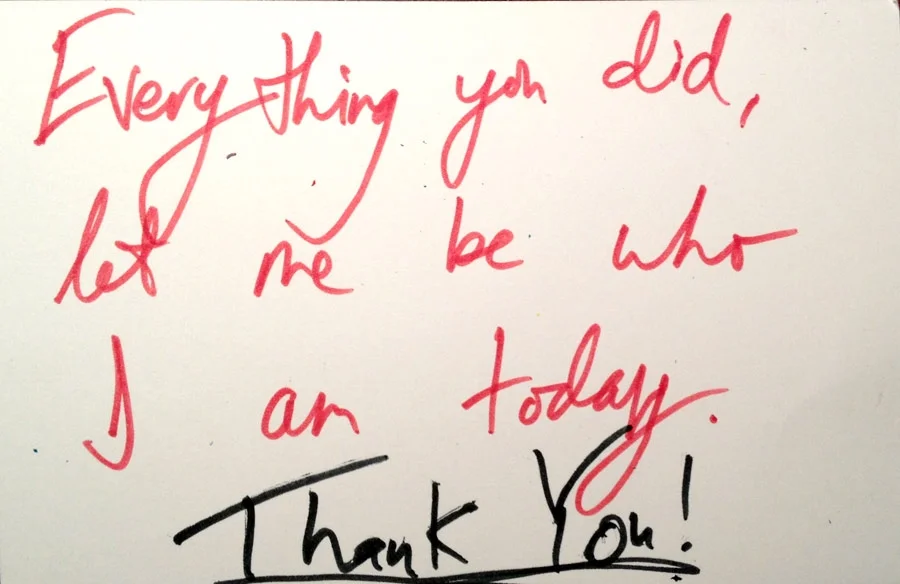 Everything you did,
let me be who
I am today.
Thank You!